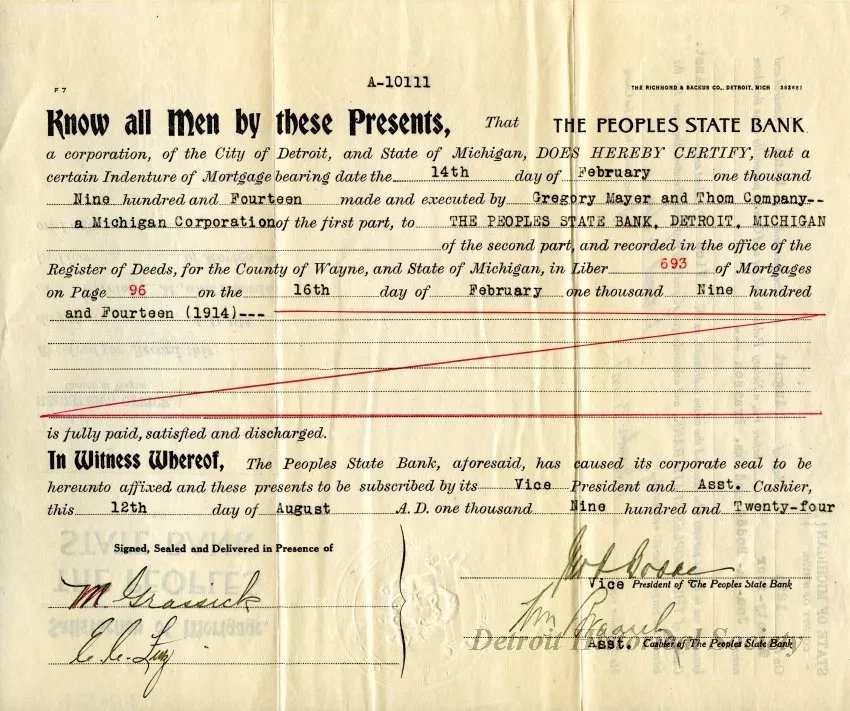 A-10111
F 7
THE RICHMOND & BACKUS CO., DETROIT, MICH 382661
Know all Men by these Presents, That THE PEOPLES STATE BANK
a corporation, of the City of Detroit, and State of Michigan, DOES HEREBY CERTIFY, that a
certain Indenture of Mortgage bearing date the 14th day of February one thousand
Nine hundred and Fourteen made and executed by Gregory Mayer and Thom Company--
a Michigan Corporation of the first part, to THE PEOPLES STATE BANK, DETROIT, MICHIGAN
of the second part, and recorded in the office of the
Register of Deeds, for the County of Wayne, and State of Michigan, in Liber 693 of Mortgages
on Page 96 on the 16th day of February one thousand Nine hundred
and Fourteen (1914)---
is fully paid, satisfied and discharged.
In Witness Whereof, The Peoples State Bank, aforesaid, has caused its corporate seal to be
hereunto affixed and these presents to be subscribed by its Vice President and Asst. Cashier,
this 12th day of August A.D. one thousand Nine hundred and Twenty-four
Signed, Sealed and Delivered in Presence of
M. Grassick
Vice President of The Peoples State Bank
E. C.
Detroit Historical Society
Asst. Cashier of The Peoples State Bank